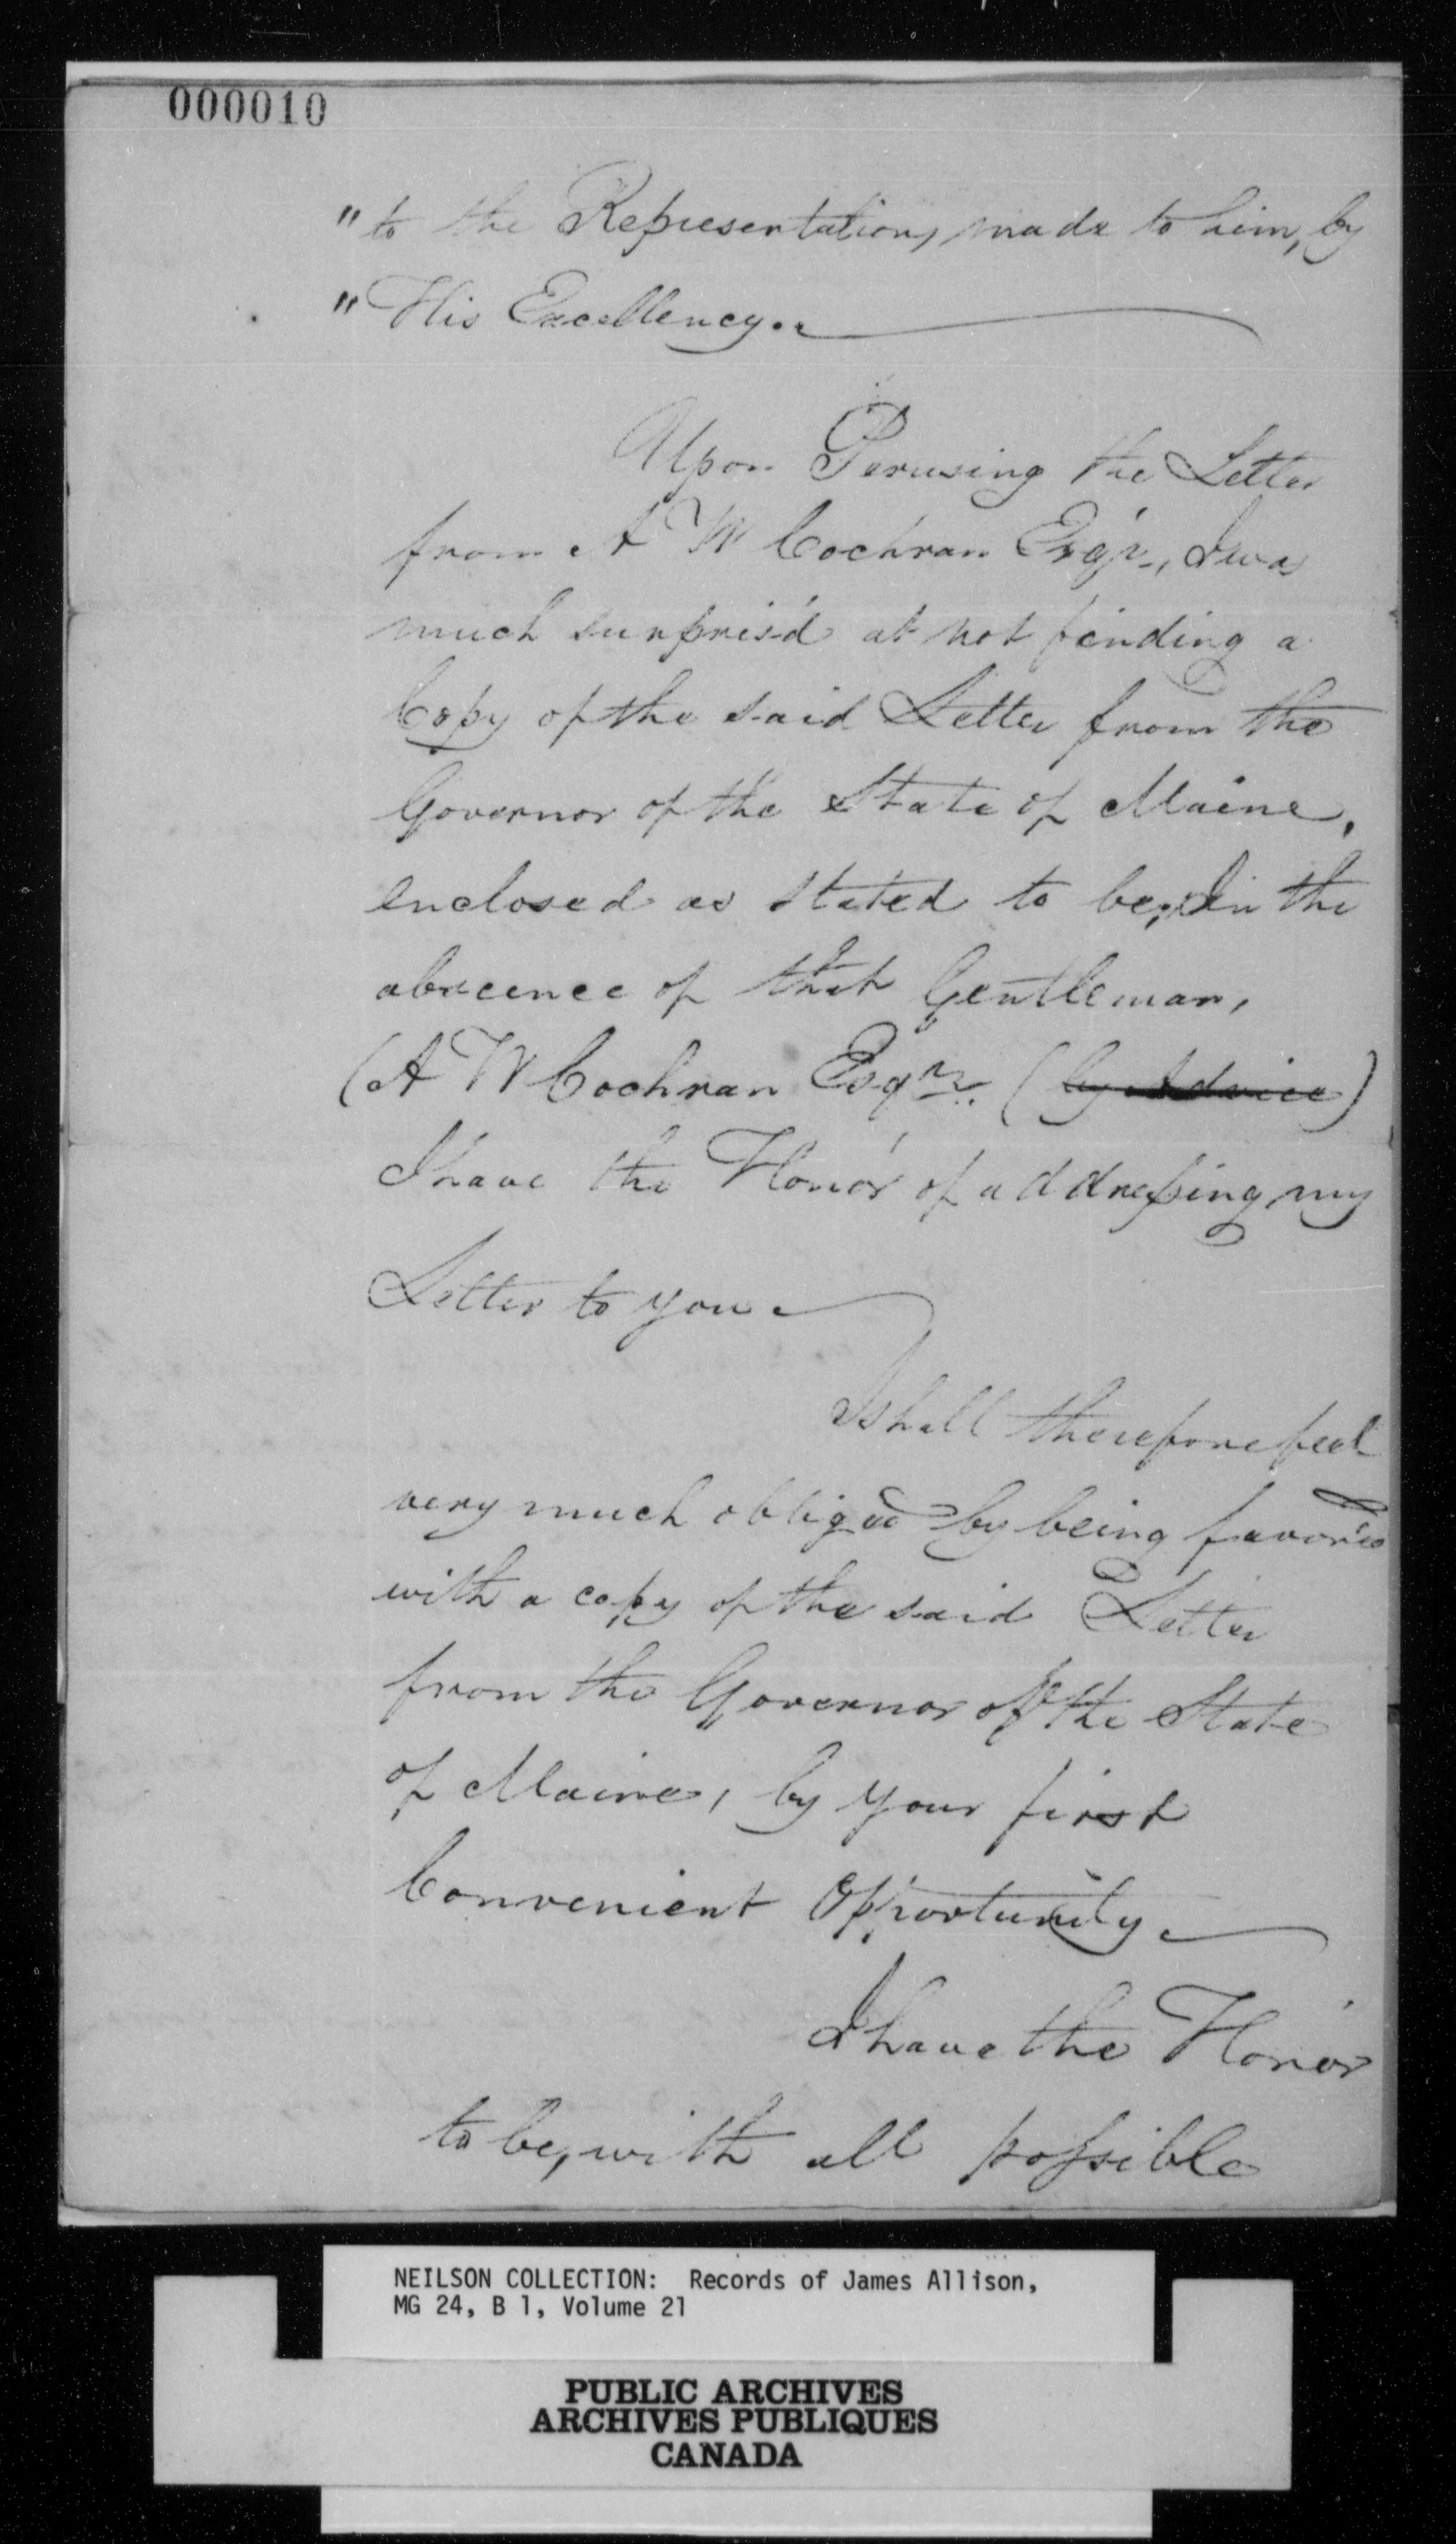 000010
"to the Representation, made to him, by
"His Excellency.
Upon Perusing the Letter
from A W Cochran Esq'r., I was
much surpris'd at not finding a
Copy of the said Letter from the
Governor of the State of Maine,
enclosed as stated to be; In the
abscence of that Gentleman,
(A W Cochran Esqr. (by Advice)
I have the Honor of addressing my
Letter to you.
I shall therefore feel
very much oblig'd by being favor'd
with a copy of the said Letter
from the Governor of the State
of Maine, by your first
Convenient Opportunity.
I have the Honor
to be, with all possible
NEILSON COLLECTION: Records of James Allison,
MG 24, B 1, Volume 21
PUBLIC ARCHIVES
ARCHIVES PUBLIQUES
CANADA